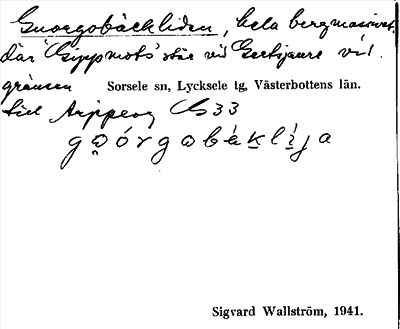 Guorgobäckliden, hela bergmassivet,
där "Gippmots" står vid Geetsjaure vid
gränsen Sorsele sn, Lycksele tg, Västerbottens län.
till Arjeplog
g o̭ ó r g ɷ b á k l í j a
Sigvard Wallström, 1941.